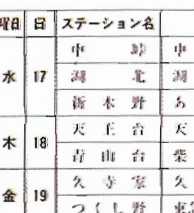 曜日 日 ステーション名
中 峠 中
水 17 湖 北 湖
新 木 野 あ
木 18 天 王 台 天
青 山 台 柴
金 19 久 寺 家 久
つ く し 野